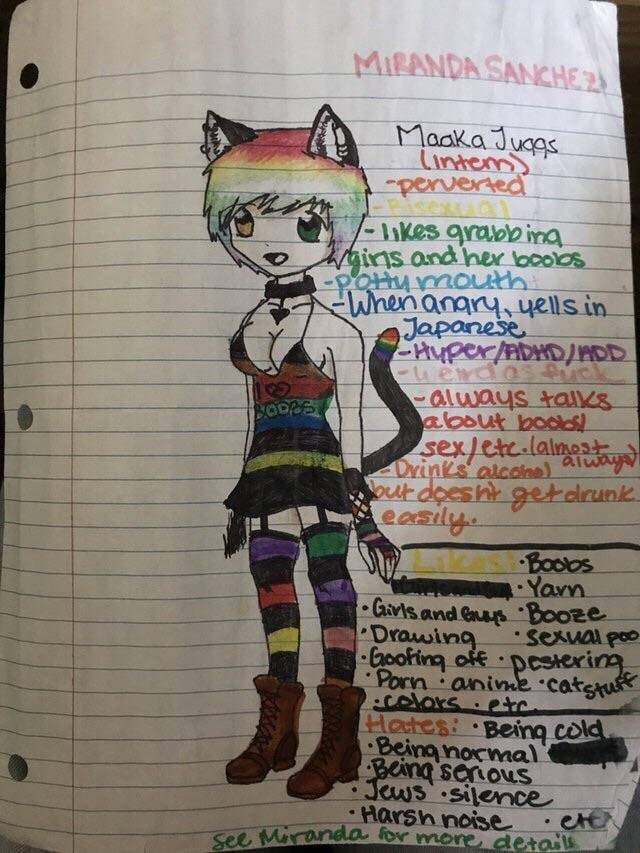 MIRANDA SANCHEZ
Maaka Juggs
(intern)
-perverted
-Bisexual
-likes grabbing
girls and her boobs
-potty mouth
-When angry, yells in
Japanese
-Hyper/ADHD/ADD
-weird as fuck
-always talks
about boobs/
sex/etc. (almost
always)
-Drinks alcohol
but doesnt get drunk
easily.
I
BOOBS
Likes: •Boobs
•Yarn
•Girls and Guys •Booze
•Drawing •sexual poo
•Goofing off •pestering
•Porn •anime •cat stuff
•colors •etc.
Hates: •Being cold
•Being normal
•Being serious
•Jews •silence
•Harsh noise •etc
See Miranda for more details